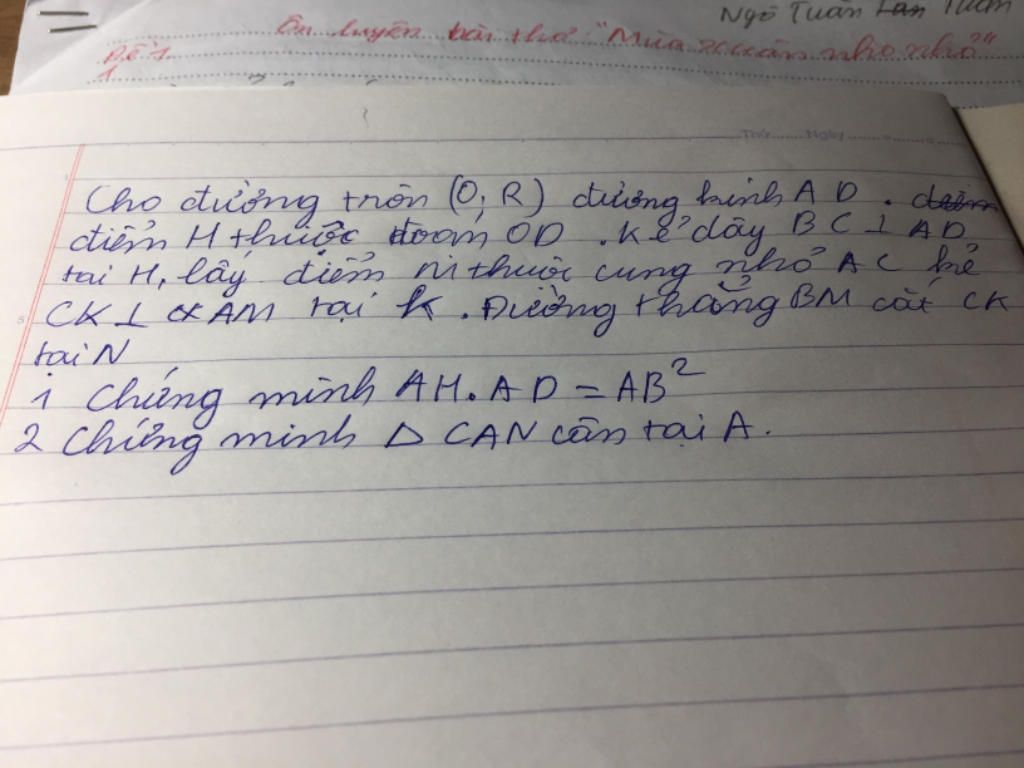 Ngô Tuấn Lan Tuấn
Ôn luyện bài thơ "Mùa xuân nho nhỏ"
Đề 1
1
Thứ ....... Ngày
Cho đường tròn (O, R) đường kính A D .
điểm H thuộc đoạn OD . Kẻ dây B C ⊥ AD
tại H, lấy điểm M thuộc cung nhỏ A C kẻ
CK ⊥ AM tại K . Đường thẳng BM cắt CK
tại N
1 Chứng minh AH . AD = AB²
2 Chứng minh Δ CAN cân tại A .